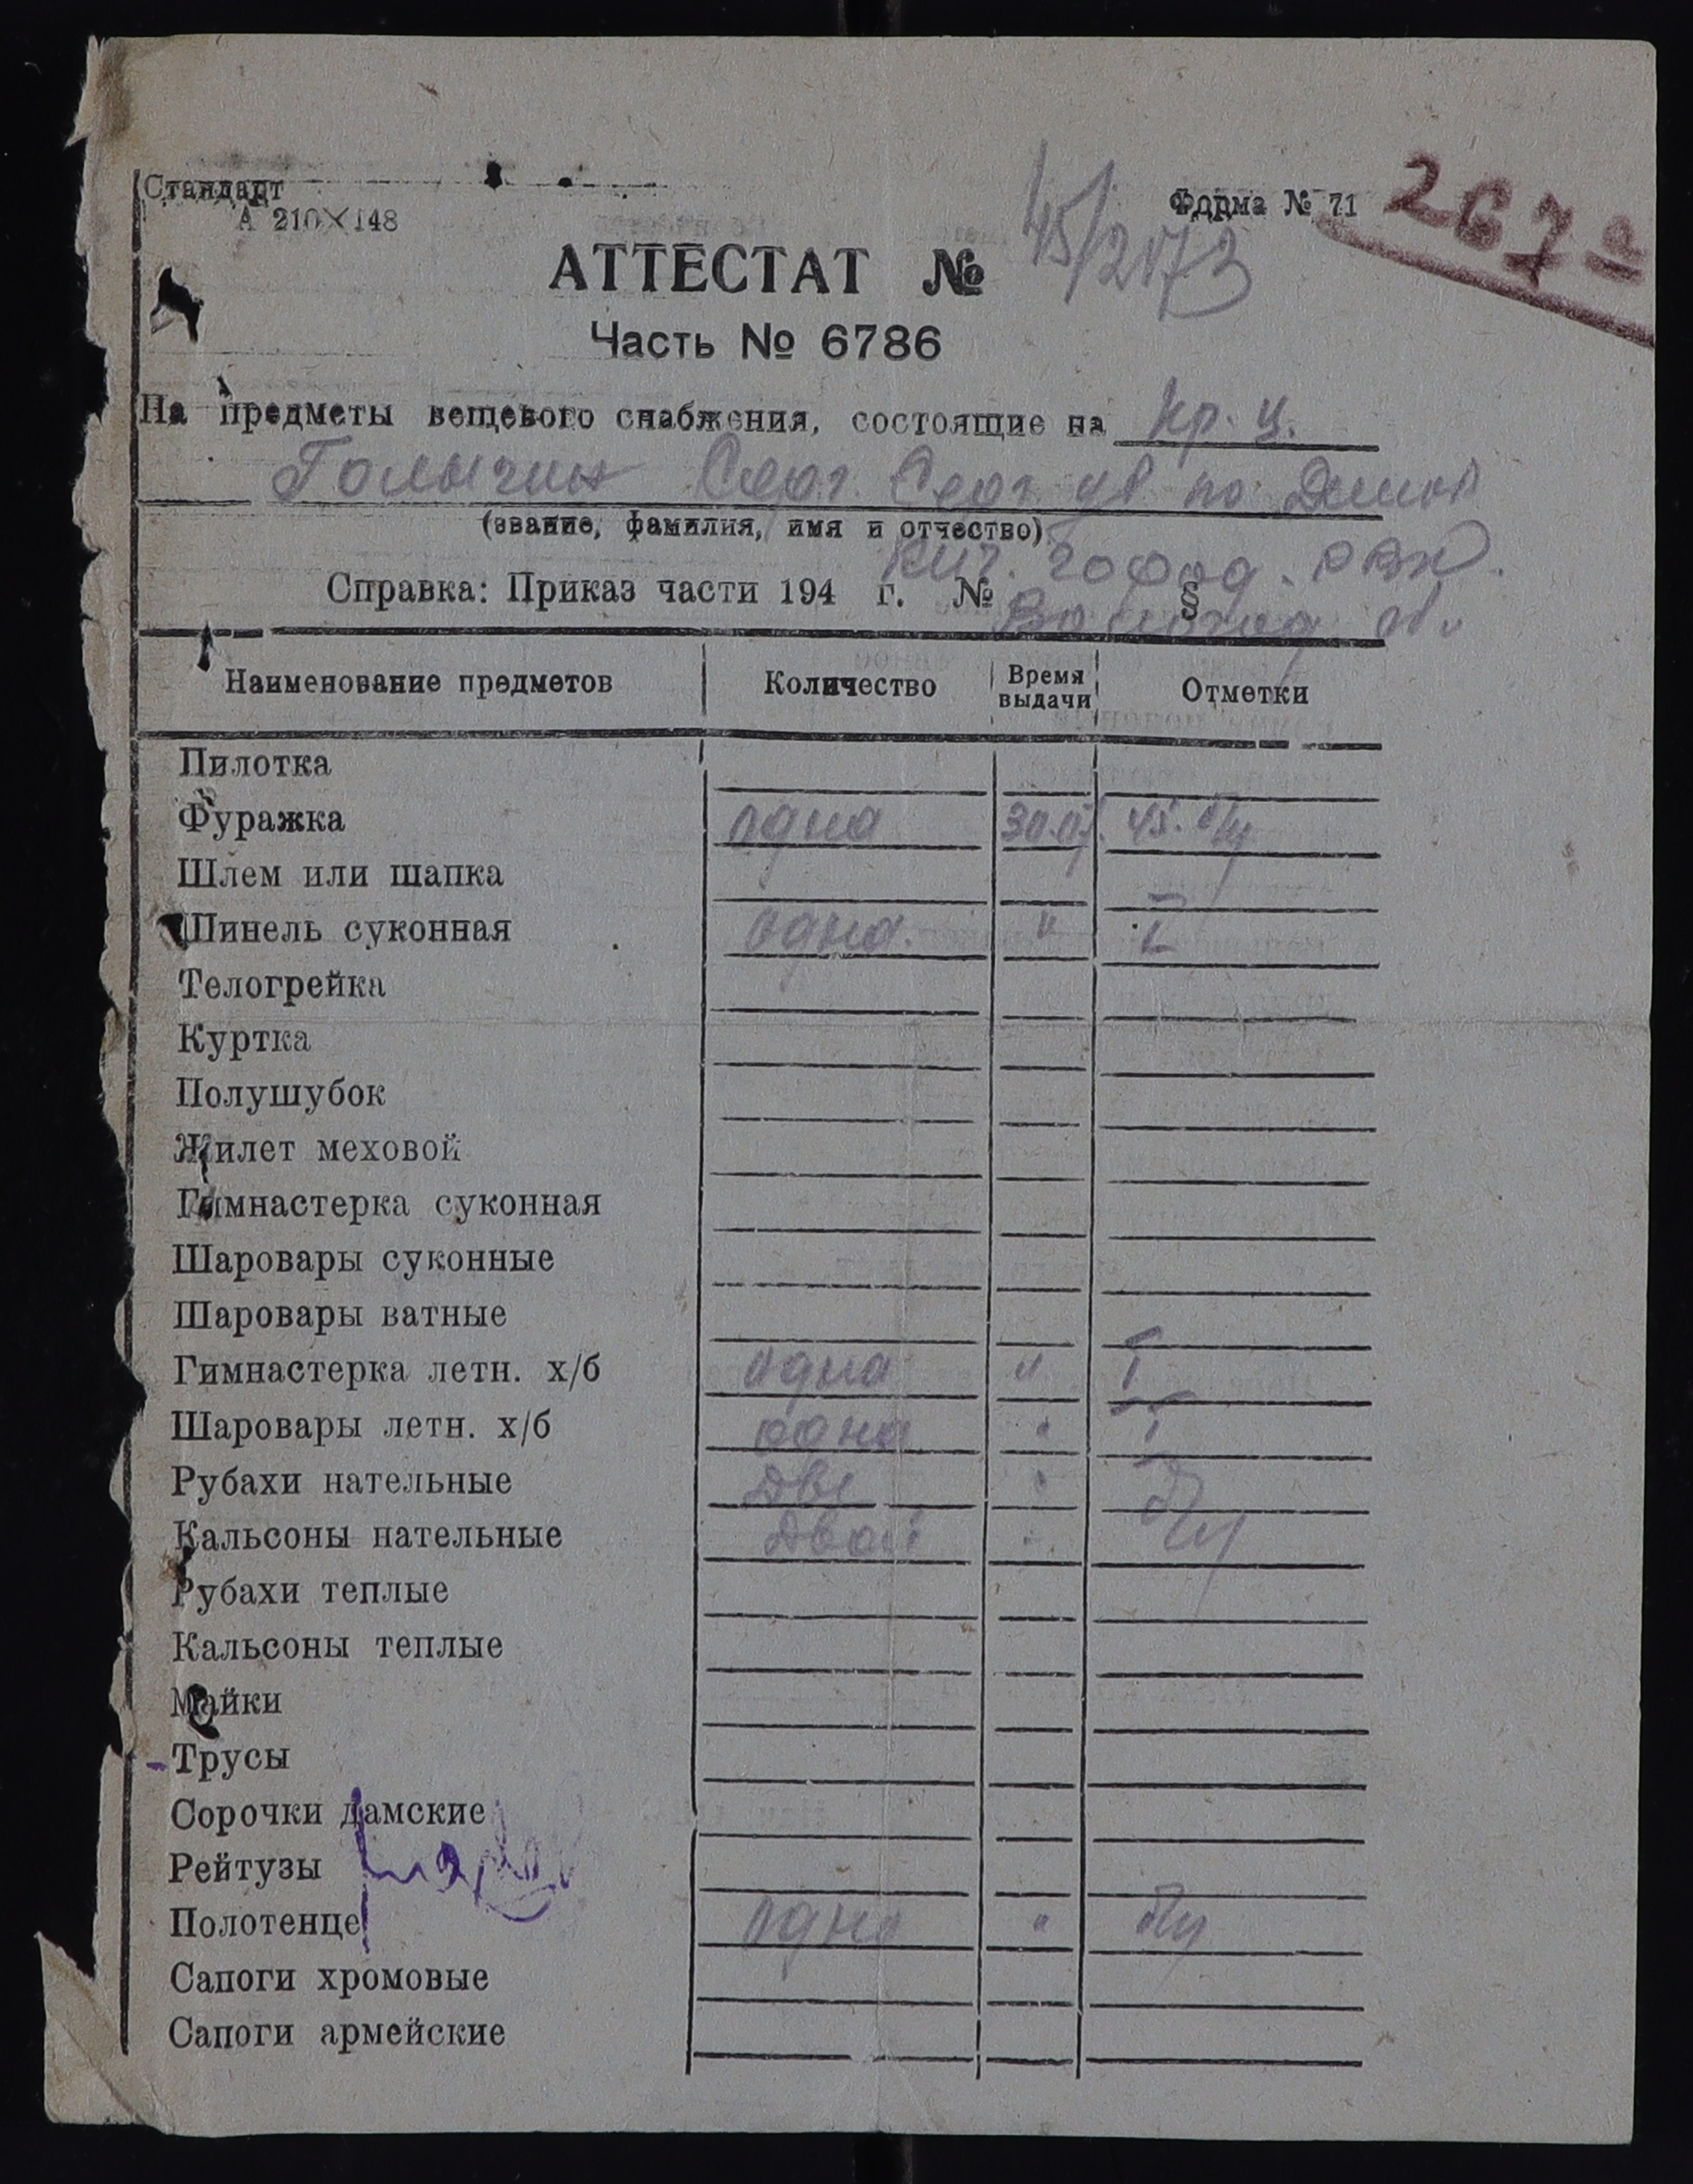 Стандарт
А 210×148
Форма № 71
267а
АТТЕСТАТ № 45/2173
Часть № 6786
На предметы вещевого снабжения, состоящие на кр-ц.
Голычин Серг. Серг. ув по Демоб
(звание, фамилия, имя и отчество)
Кич. Город. РВК.
Справка: Приказ части 194 г. № §
Вологод. об.
Наименование предметов Количество Время выдачи Отметки
Пилотка
Фуражка одна 30.09. 45. б/у
Шлем или шапка
Шинель суконная одна. "
Телогрейка
Куртка
Полушубок
Жилет меховой
Гимнастерка суконная
Шаровары суконные
Шаровары ватные
Гимнастерка летн. х/б одна " I
Шаровары летн. х/б одна " I
Рубахи нательные Две "
Кальсоны нательные Двои " б/у
Рубахи теплые
Кальсоны теплые
Майки
Трусы
Сорочки дамские
Рейтузы
Полотенце одно " б/у
Сапоги хромовые
Сапоги армейские